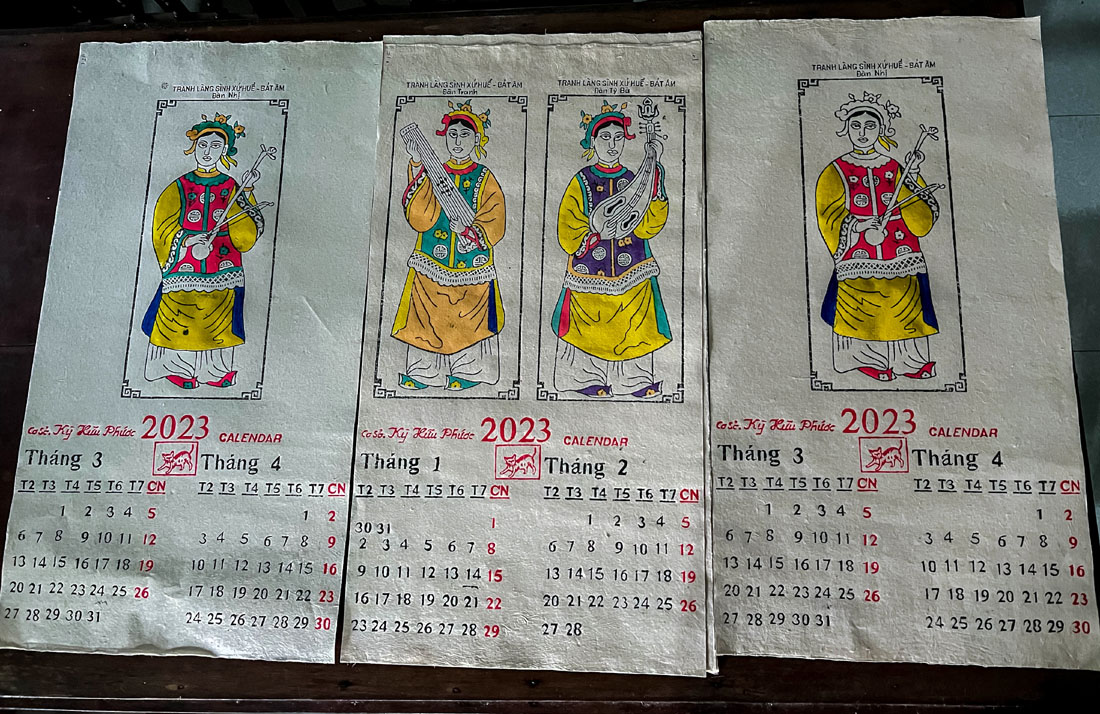 TRANH LÀNG SÌNH XỨ HUẾ - BÁT ÂM
Đàn Nhị
Cơ sở. Kỳ Hữu Phước 2023 CALENDAR
Tháng 3 Tháng 4
T2 T3 T4 T5 T6 T7 CN T2 T3 T4 T5 T6 T7 CN
1 2 3 4 5 1 2
6 7 8 9 10 11 12 3 4 5 6 7 8 9
13 14 15 16 17 18 19 10 11 12 13 14 15 16
20 21 22 23 24 25 26 17 18 19 20 21 22 23
27 28 29 30 31 24 25 26 27 28 29 30
TRANH LÀNG SÌNH XỨ HUẾ - BÁT ÂM TRANH LÀNG SÌNH XỨ HUẾ - BÁT ÂM
Đàn Tranh Đàn Tỳ Bà
Cơ sở. Kỳ Hữu Phước 2023 CALENDAR
Tháng 1 Tháng 2
T2 T3 T4 T5 T6 T7 CN T2 T3 T4 T5 T6 T7 CN
30 31 1 1 2 3 4 5
2 3 4 5 6 7 8 6 7 8 9 10 11 12
9 10 11 12 13 14 15 13 14 15 16 17 18 19
16 17 18 19 20 21 22 20 21 22 23 24 25 26
23 24 25 26 27 28 29 27 28
TRANH LÀNG SÌNH XỨ HUẾ - BÁT ÂM
Đàn Nhị
Cơ sở. Kỳ Hữu Phước 2023 CALENDAR
Tháng 3 Tháng 4
T2 T3 T4 T5 T6 T7 CN T2 T3 T4 T5 T6 T7 CN
1 2 3 4 5 1 2
6 7 8 9 10 11 12 3 4 5 6 7 8 9
13 14 15 16 17 18 19 10 11 12 13 14 15 16
20 21 22 23 24 25 26 17 18 19 20 21 22 23
27 28 29 30 31 24 25 26 27 28 29 30